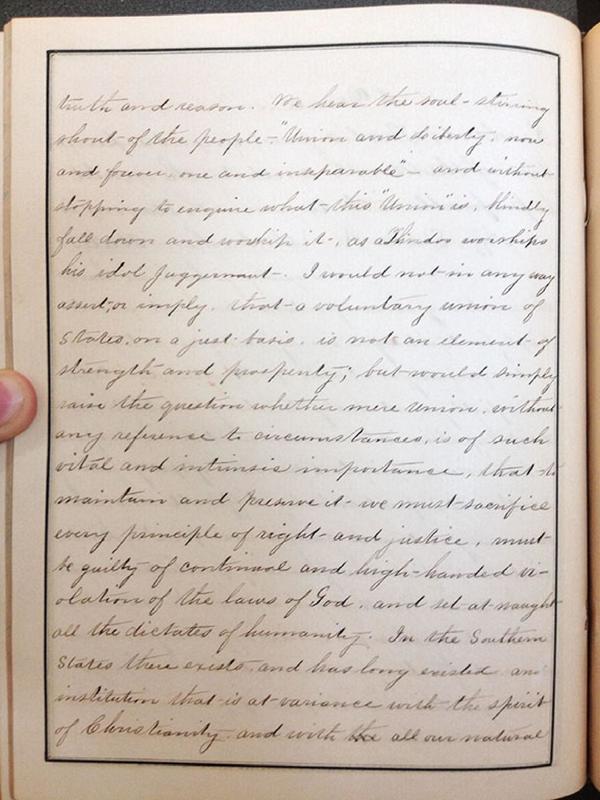 truth and reason. We hear the soul-stirring
shout of the people - "Union and Liberty, now
and forever, one and inseparable" - and without
stopping to enquire what this "Union" is, blindly
fall down and worship it, as a Hindoo worships
his idol Juggernaut. I would not in any way
assert, or imply, that a voluntary union of
States, on a just basis, is not an element of
strength and prosperity; but would simply
raise the question whether mere union, without
any reference to circumstances, is of such
vital and intrinsic importance, that to
maintain and preserve it we must sacrifice
every principle of right and justice, must
be guilty of continual and high-handed vi-
olation of the laws of God, and set at naught
all the dictates of humanity. In the Southern
States there exists, and has long existed an
institution that is at variance with the spirit
of Christianity, and with the all our natural